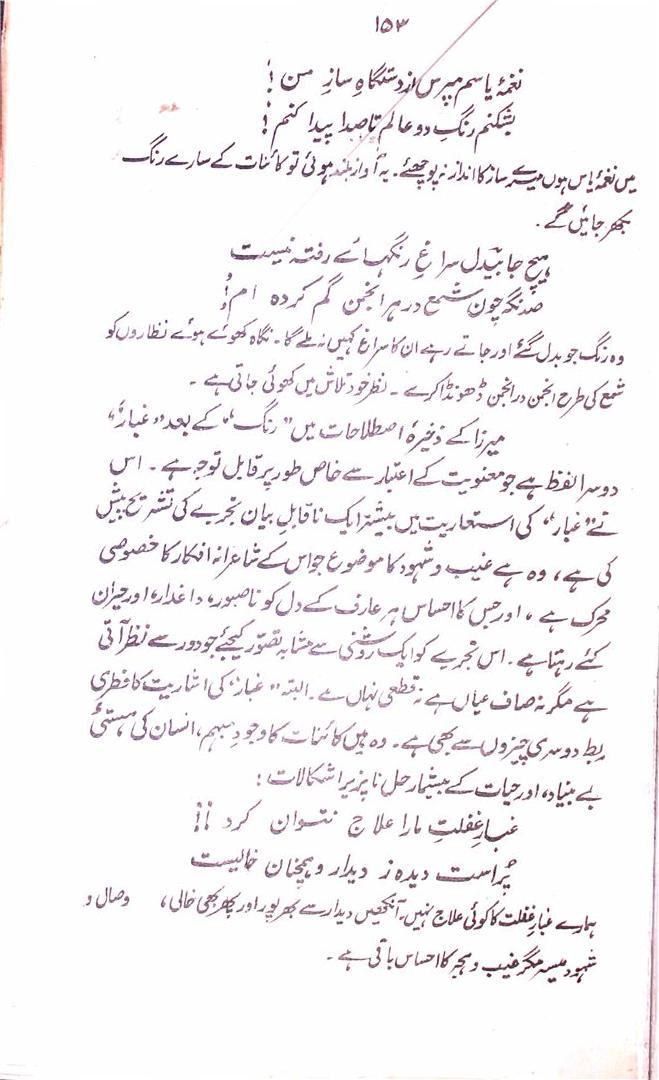 ۱۵۳
نغمۂ یاسم مپرس از دستگاہِ سازِ من!
بشکنم رنگِ دو عالم تا صدا پیدا کنم!
میں نغمۂ یاس ہوں میرے ساز کا انداز نہ پوچھئے۔ یہ آواز بلند ہوئی تو کائنات کے سارے رنگ
بکھر جائیں گے۔
ہیچ جا بیدل سراغِ رنگہائے رفتہ نیست
صد نگہ چون شمع در ہر انجمن گم کردہ ام!
وہ رنگ جو بدل گئے اور جاتے رہے ان کا سراغ کہیں نہ ملے گا۔ نگاہ کھوئے ہوئے نظاروں کو
شمع کی طرح انجمن در انجمن ڈھونڈا کرے۔ نظر خود تلاش میں کھوئی جاتی ہے۔
میرزا کے ذخیرۂ اصطلاحات میں ”رنگ“ کے بعد ”غبار“
دوسرا لفظ ہے جو معنویت کے اعتبار سے خاص طور پر قابل توجہ ہے۔ اس
نے ”غبار“ کی استعاریت میں بیشتر ایک ناقابلِ بیان تجربے کی تشریح پیش
کی ہے، وہ ہے غیب و شہود کا موضوع جو اس کے شاعرانہ افکار کا خصوصی
محرک ہے، اور جس کا احساس ہر عارف کے دل کو ناصبور، داغدار، اور حیران
کئے رہتا ہے۔ اس تجربے کو ایک روشنی سے مشابہ تصوّر کیجئے جو دور سے نظر آتی
ہے مگر نہ صاف عیاں ہے نہ قطعی نہاں ہے۔ البتہ ”غبار“ کی اشاریت کا فطری
ربط دوسری چیزوں سے بھی ہے۔ وہ ہیں کائنات کا وجودِ مبہم، انسان کی ہستیٔ
بے بنیاد، اور حیات کے بیشمار حل ناپذیر اشکالات:
غبارِ غفلتِ ما را علاج نتوان کرد!!
پُر است دیدہ ز دیدار و ہمچنان خالیست
ہمارے غبارِ غفلت کا کوئی علاج نہیں۔ آنکھیں دیدار سے بھرپور اور پھر بھی خالی، وصال و
شہود میسر مگر غیب و ہجر کا احساس باقی ہے۔